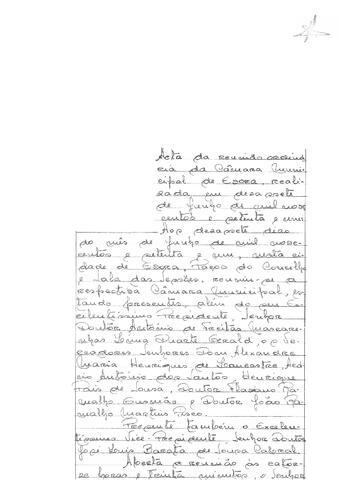 Acta da reunião ordiná
ria da Câmara Muni
cipal de Évora, reali
zada em dezassete
de Junho de mil nove
centos e setenta e um
Aos dezassete dias
do mês de Junho de mil nove
centos e setenta e um, nesta ci
dade de Évora, Paços do Concelho
e Sala das Sessões, reuniu-se a
respectiva Câmara Municipal, es
tando presentes, além do seu Ex
celentíssimo Presidente, Senhor
Doutor António de Freitas Mascare
nhas Duarte Gerald, os Ve
readores Senhores Dom Alexandre
Maria Henriques de Lancastre,
António dos Santos Henrique
Pais de Sousa, Doutor Ra
malho Gusmão e Doutor João Ra
malho Martins
Presente também o Excelen
tíssimo Vice-Presidente, Senhor Doutor
José Luís Barata de Sousa Cabral.
Aberta a reunião às cator
ze horas e trinta minutos, o Senhor